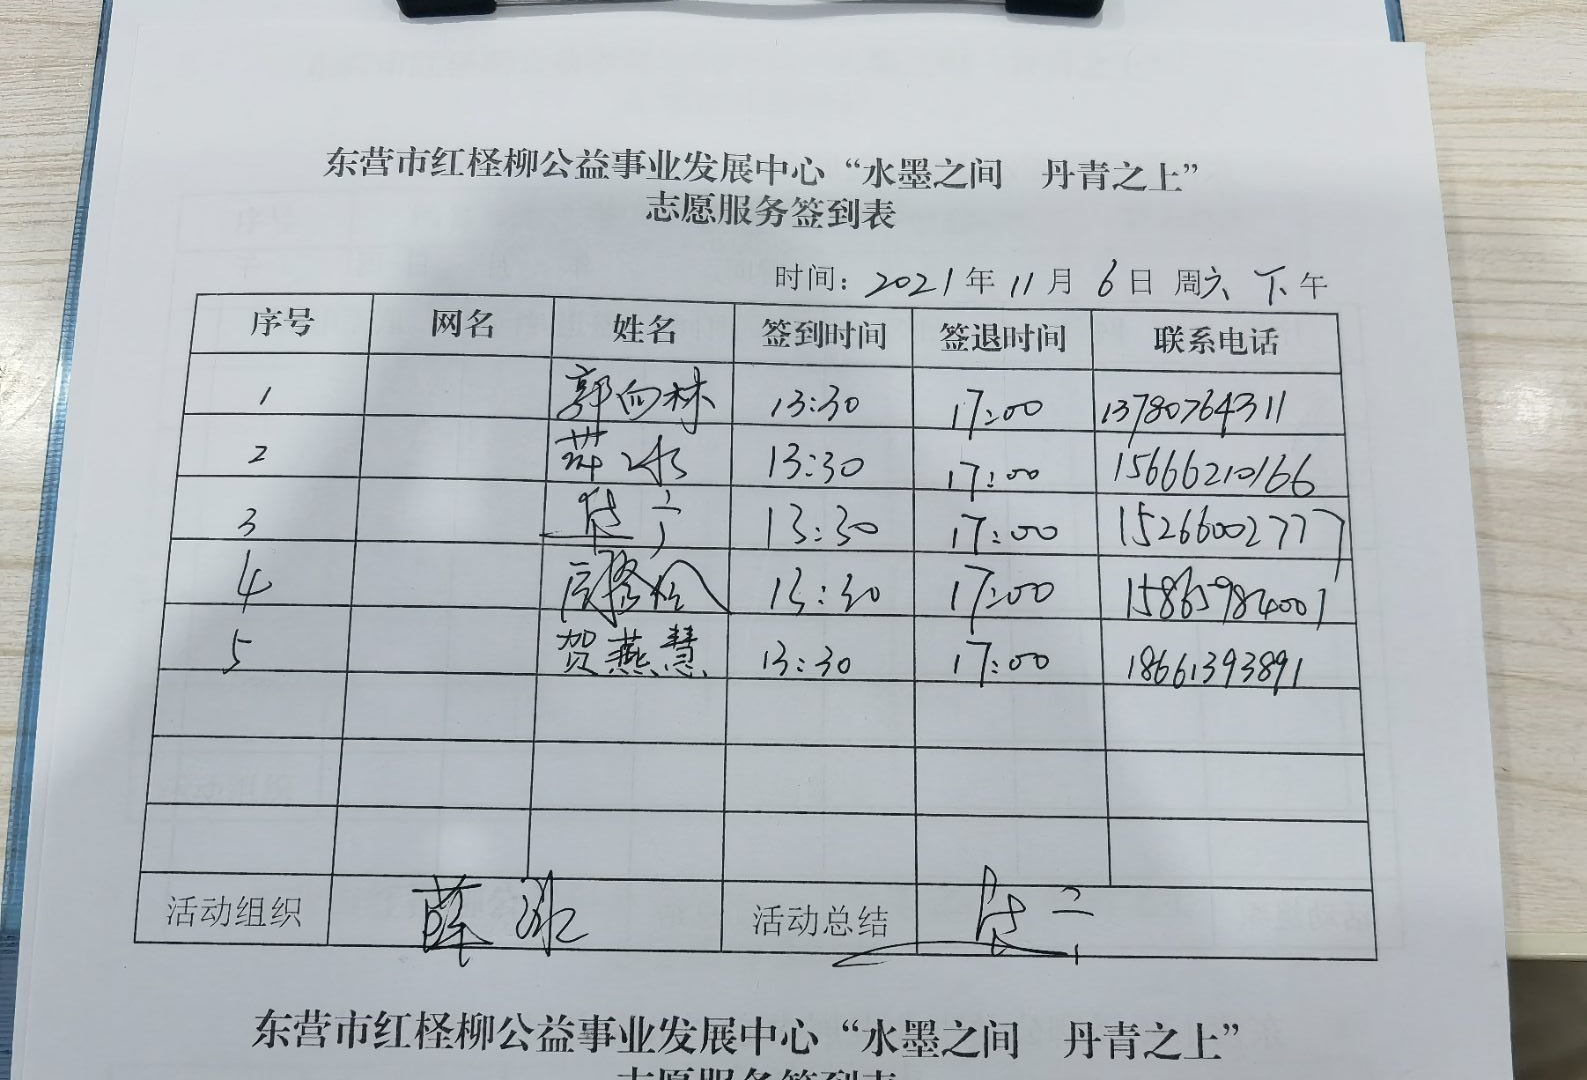 东营市红柽柳公益事业发展中心“水墨之间 丹青之上”
志愿服务签到表
时间: 2021年 11月 6日 周六 下午
序号 网名 姓名 签到时间 签退时间 联系电话
1 郭向林 13:30 17:00 13780764311
2 薛冰 13:30 17:00 15666210166
3 13:30 17:00 15266002777
4 13:30 17:00 15865984001
5 贺燕慧 13:30 17:00 18661393891
活动组织 薛冰 活动总结
东营市红柽柳公益事业发展中心“水墨之间 丹青之上”
志愿服务签到表